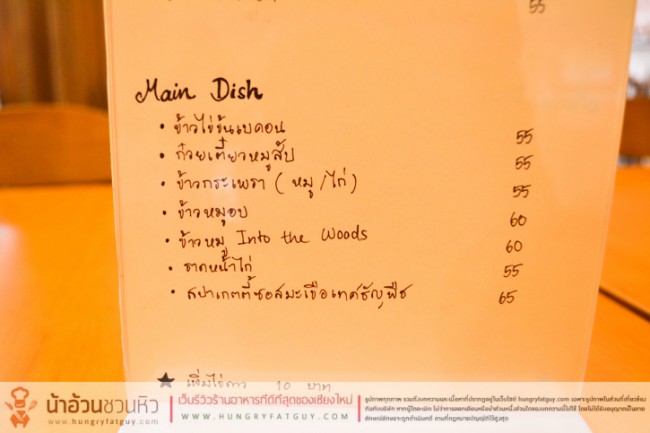 55
Main Dish
• ข้าวไข่ข้นเบคอน 55
• ก๋วยเตี๋ยวหมูสับ 55
• ข้าวกระเพรา ( หมู /ไก่ ) 55
• ข้าวหมูอบ 60
• ข้าวหมู Into the Woods 60
• ราดหน้าไก่ 55
• สปาเกตตี้ซอสมะเขือเทศธัญพืช 65
★ เพิ่มไข่ดาว 10 บาท
น้าอ้วนชวนหิว
www.hungryfatguy.com
เว็บรีวิวร้านอาหารที่ดีที่สุดของเชียงใหม่
WWW.HUNGRYFATGUY.COM